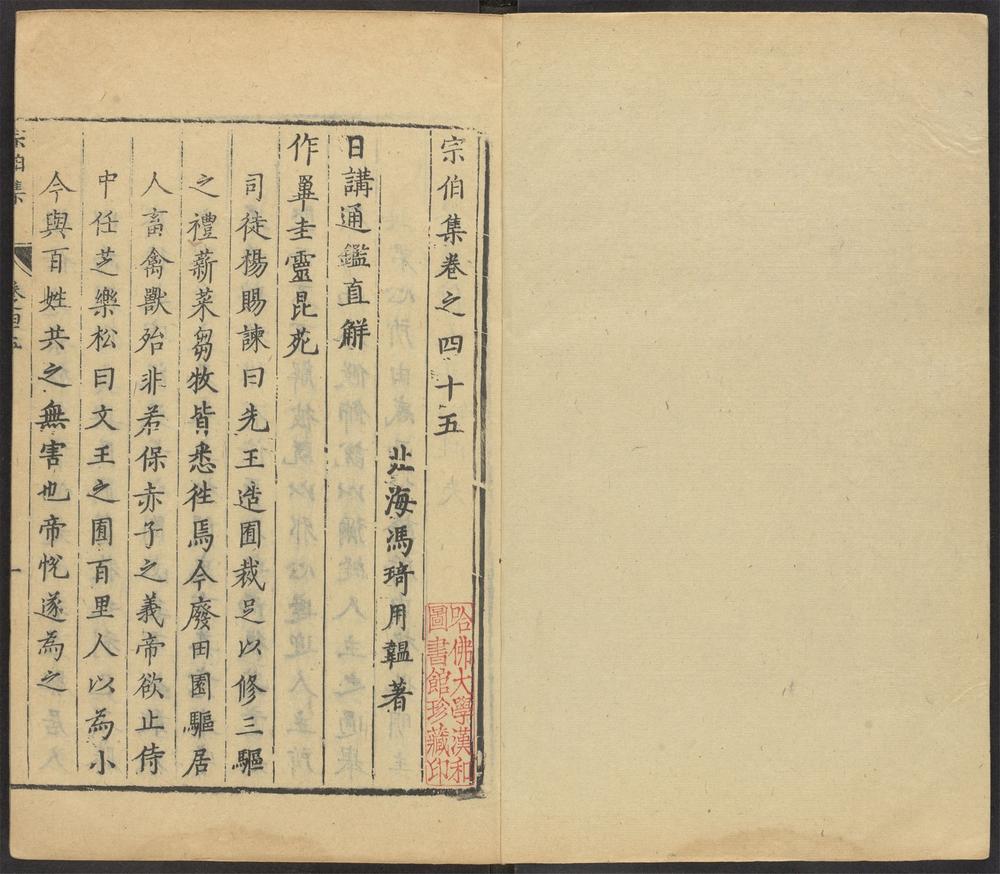 宗伯集卷之四十五
北海馮琦用韞著
日講通鑑直解
作罼圭靈昆苑
司徒楊賜諫曰先王造囿裁足以修三驅
之禮薪菜芻牧皆悉徃焉今廢田園驅居
人畜禽獸殆非若保赤子之義帝欲止侍
中任芝樂松曰文王之囿百里人以為小
今與百姓共之無害也帝悅遂為之
宗伯集
卷之四十五
一
哈佛大學漢和
圖書館珍藏印